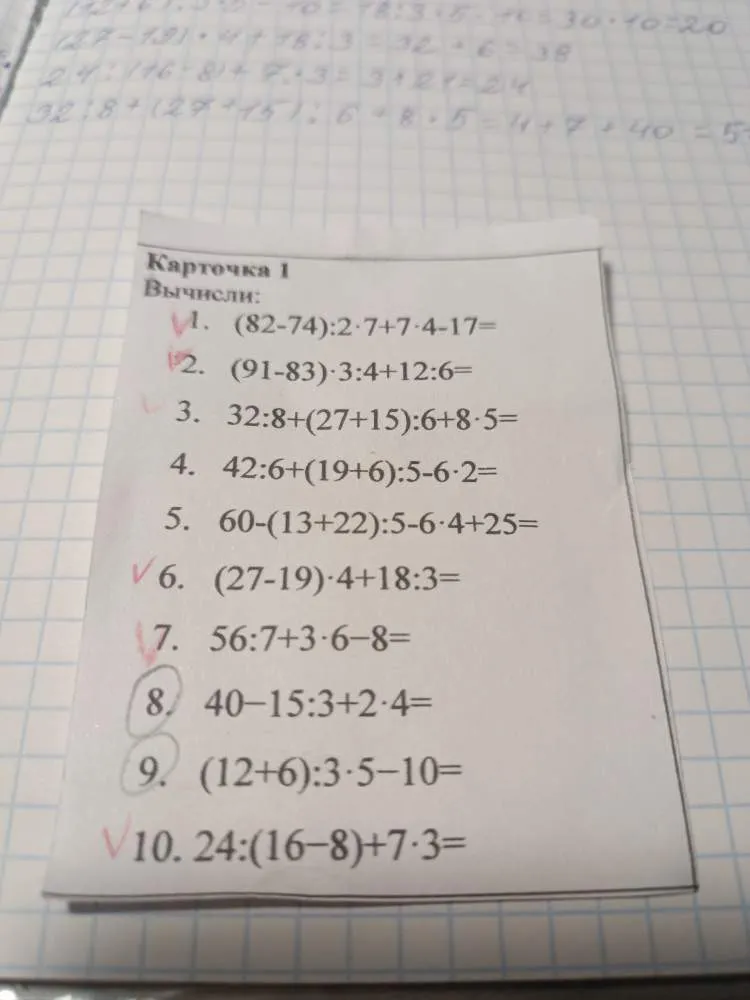 (12+6):3·5-10=18:3·5-10=30-10=20
(27-19)·4+18:3=32+6=38
24:(16-8)+7·3=3+21=24
32:8+(27+15):6+8·5=4+7+40=5
Карточка 1
Вычисли:
1. (82-74):2·7+7·4-17=
2. (91-83)·3:4+12:6=
3. 32:8+(27+15):6+8·5=
4. 42:6+(19+6):5-6·2=
5. 60-(13+22):5-6·4+25=
6. (27-19)·4+18:3=
7. 56:7+3·6−8=
8. 40−15:3+2·4=
9. (12+6):3·5−10=
10. 24:(16−8)+7·3=